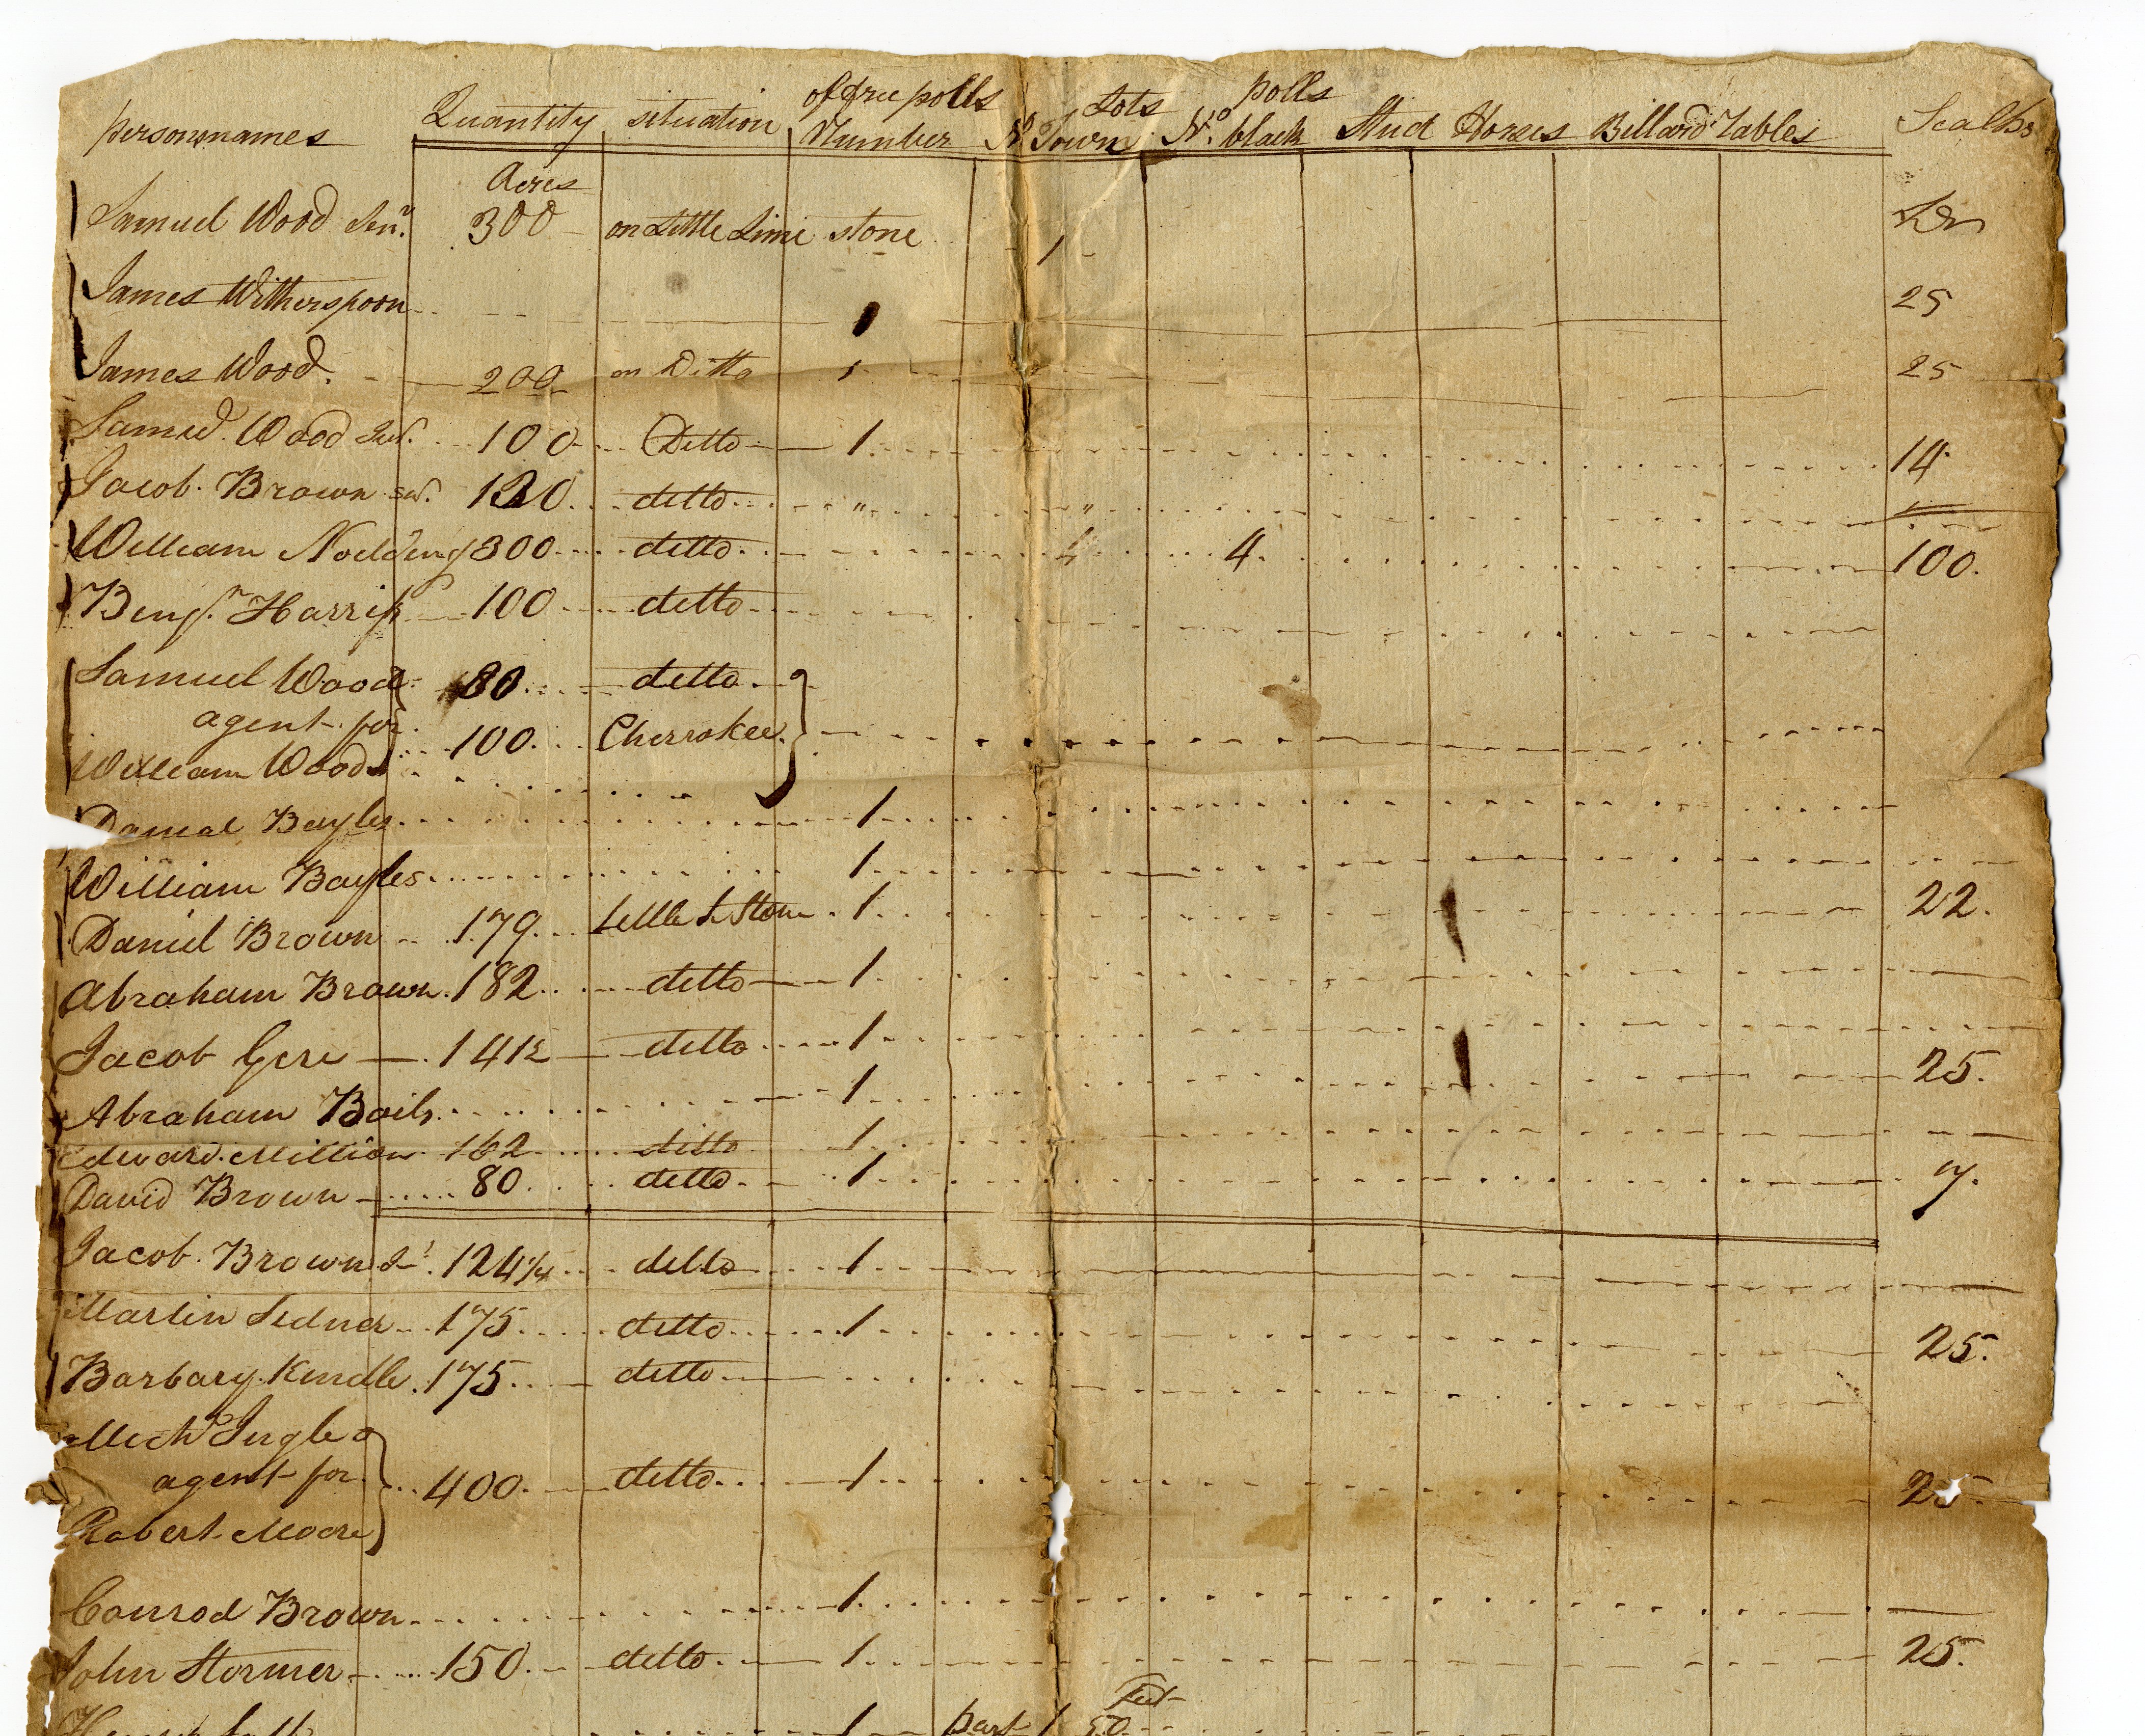 of free polls Lots polls
persons names Quantity situation Number No Town No. black Stud Horses Billard Tables Scalps
Acres
Samuel Wood Senr. 300 on Little Lime stone 1
James Witherspoon 1 25
James Wood. 200 on Ditto 1 25
Samul. Wood Jur. 100 Ditto 1 14
Jacob. Brown sr. 120 ditto " "
William Nodding 300 ditto 4 4. 100.
Benjn. Harris 100 ditto
Samuel Wood 80 ditto
agent for
100. Cherrokee
William Wood
Danial Bayles 1
William Bayles 1
Daniel Brown 179 Little L Stone 1 22.
Abraham Brown 182 ditto 1
Jacob Gere 141½ ditto 1 25.
Abraham Bails 1
Edward Million 162 ditto 1
David Brown 80 ditto 1 7.
Jacob. Brown Jr 124¼ ditto 1
Martin Sidner 175 ditto 1 25.
Barbary Kindle 175 ditto
Mich Ingle
agent for 400. ditto 1 25.
Robert Moore
Conrod Brown 1
John Stormer 150. ditto 1 25.
feet
1 part 1 50